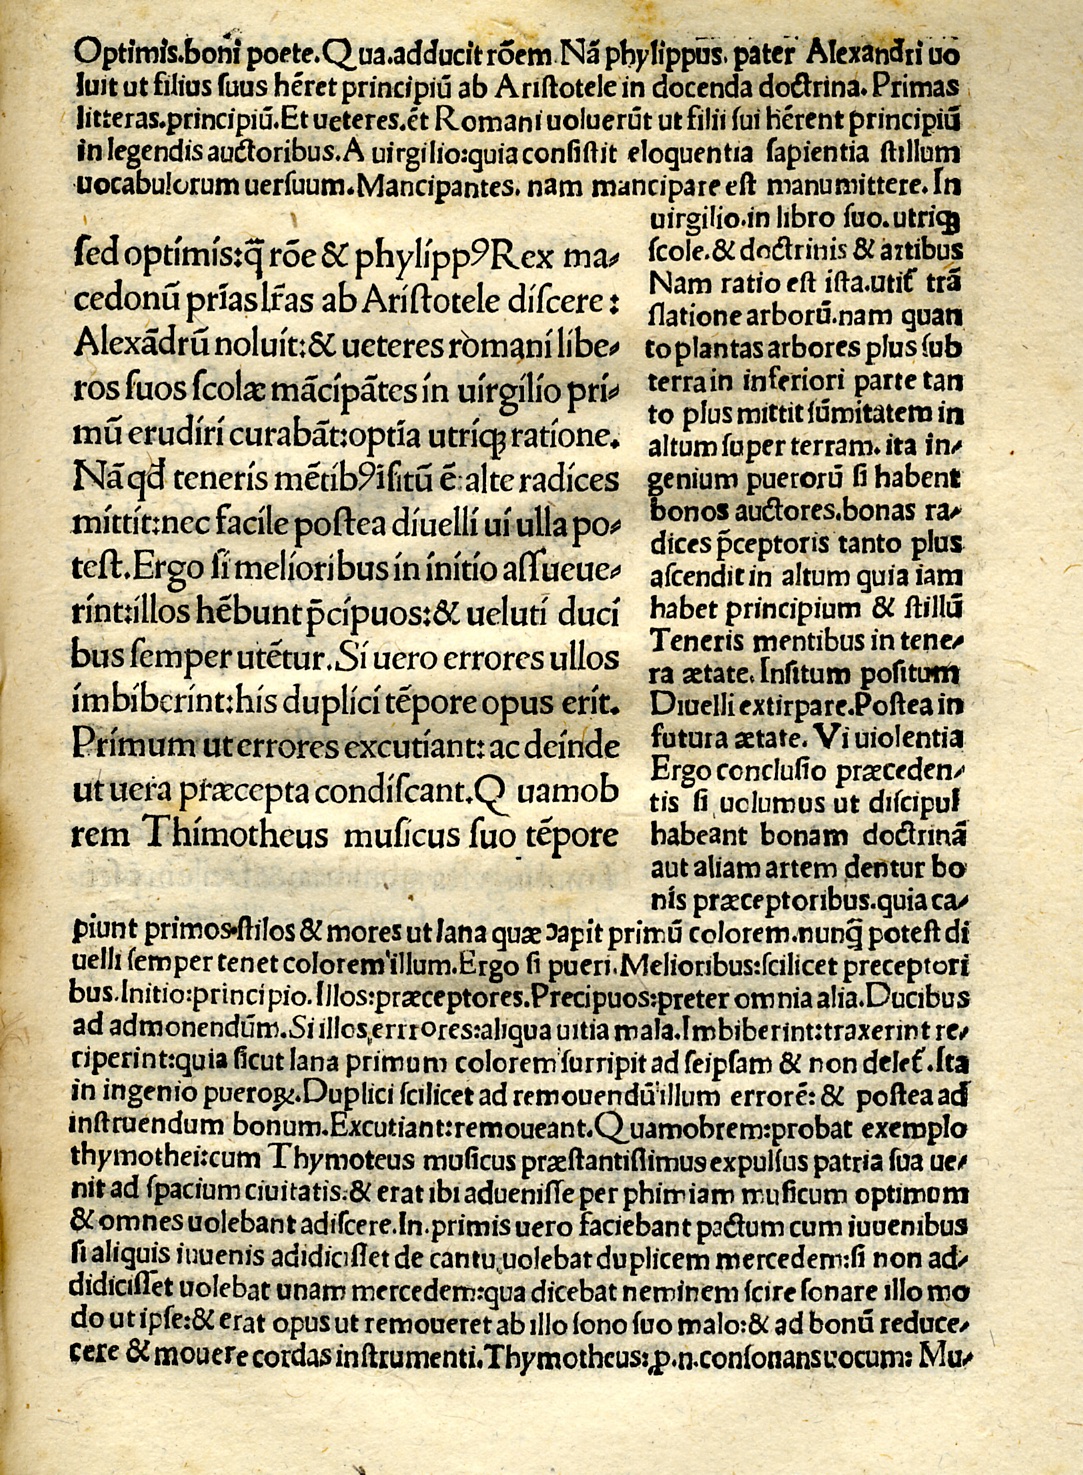 Optimis.boni poete.Qua.adducit rõem.Nã phylippus. pater Alexandri uo
luit ut filius ſuus hẽret principiũ ab Ariſtotele in docenda doctrina. Primas
litteras.principiũ.Et ueteres.ẽt Romani uoluerũt ut filii ſui hẽrent principiũ
in legendis auctoribus.A uirgilio:quia conſiſtit eloquentia ſapientia ſtillum
uocabulorum uerſuum.Mancipantes. nam mancipare eſt manumittere. In
uirgilio.in libro ſuo.utriqꝫ
ſcole.& doctrinis & artibus
Nam ratio eſt iſta.utit᷑ trã
ſlatione arborũ.nam quan
to plantas arbores plus ſub
terra in inferiori parte tan
to plus mittit ſũmitatem in
altum ſuper terram. ita in⸗
genium puerorũ ſi habent
bonos auctores.bonas ra⸗
dices p̃ceptoris tanto plus
aſcendit in altum quia iam
habet principium & ſtillũ
Teneris mentibus in tene⸗
ra ætate. Inſitum poſitum
Diuelli extirpare.Poſtea in
futura ætate. Vi uiolentia
Ergo concluſio præceden⸗
tis ſi uolumus ut diſcipul
habeant bonam doctrinã
aut aliam artem dentur bo
nis præceptoribus.quia ca⸗
ſed optimis:q̃ rõe & phylippꝰRex ma⸗
cedonũ prĩas lr̃as ab Ariſtotele diſcere:
Alexãdrũ noluit:& ueteres romani libe⸗
ros ſuos ſcolæ mãcipãtes in uirgilio pri⸗
mũ erudiri curabãt:optĩa utriqꝫ ratione.
Nã qđ teneris mẽtibꝰ ĩſitũ ẽ:alte radices
mittit:nec facile poſtea diuelli ui ulla po⸗
teſt.Ergo ſi melioribus in initio aſſueue⸗
rint:illos hẽbunt p̃cipuos:& ueluti duci
bus ſemper utẽtur.Si uero errores ullos
imbiberint:his duplici tẽpore opus erit.
Primum ut errores excutiant: ac deinde
ut uera præcepta condiſcant.Quamob
rem Thimotheus muſicus ſuo tẽpore
piunt primos ſtilos & mores ut lana quæ capit primũ colorem.nunq̃ poteſt di
uelli ſemper tenet colorem illum.Ergo ſi pueri.Melioribus:ſcilicet preceptori
bus.Initio:principio.Illos:præceptores.Precipuos:preter omnia alia.Ducibus
ad admonendũm.Si illos errrores:aliqua uitia mala.Imbiberint:traxerint re⸗
ciperint:quia ſicut lana primum colorem ſurripit ad ſeipſam & non delet᷑.Ita
in ingenio pueroꝝ.Duplici ſcilicet ad remouendũ illum errorẽ: & poſtea ad
inſtruendum bonum.Excutiant:remoueant.Quamobrem:probat exemplo
thymothei:cum Thymoteus muſicus præſtantiſſimus expulſus patria ſua ue⸗
nit ad ſpacium ciuitatis.& erat ibi adueniſſe per phimiam muſicum optimom
& omnes uolebant adiſcere.In.primis uero faciebant pactum cum iuuenibus
ſi aliquis iuuenis adidiciſſet de cantu uolebat duplicem mercedem:ſi non ad⸗
didiciſſet uolebat unam mercedem:qua dicebat neminem ſcire ſonare illo mo
do ut ipſe:& erat opus ut remoueret ab illo ſono ſuo malo:& ad bonũ reduce⸗
cere & mouere cordas inſtrumenti.Thymotheus:ꝓ.n.conſonans uocum: Mu⸗